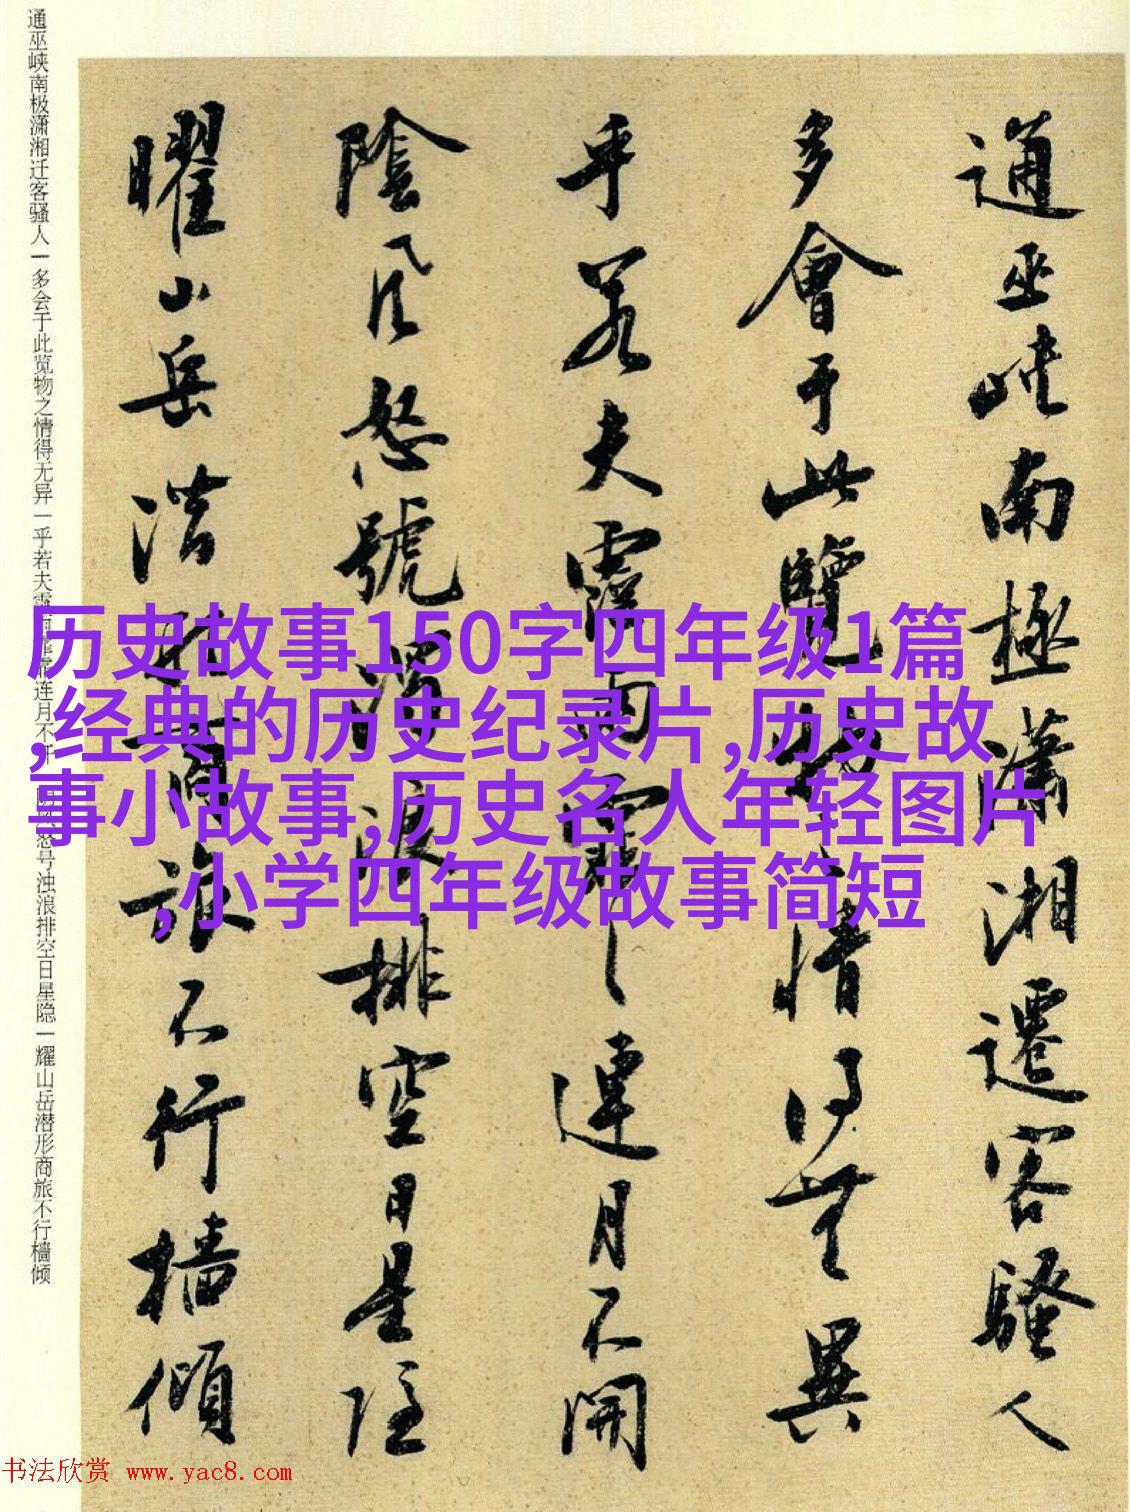 通巫峡南極瀟湘遷客騷人
多會于此覽物之情得無異
乎若夫霪雨霏霏連月不開
陰風怒號濁浪排空日星隱
曜山岳潛形商旅不行檣傾
通巫峡南极潇湘迁客骚人一多会于此览物之情得无异一乎若夫霪雨霏霏连月不开一阴风怒号浊浪排空日星隐一耀山岳潜形商旅不行樯倾
历史故事150字四年级1篇
,经典的历史纪录片,历史故
事小故事,历史名人年轻图片
,小学四年级故事简短
书法欣赏 www.yac8.com